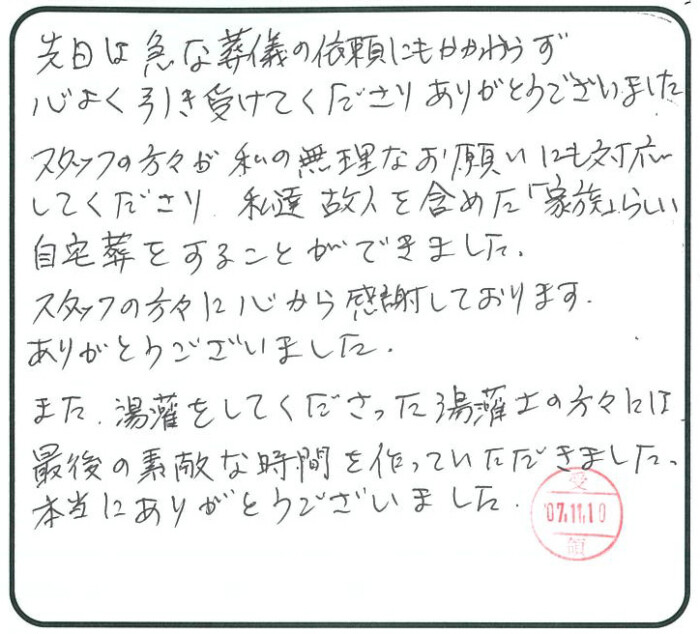 先日は急な葬儀の依頼にもかかわらず
心よく引き受けてくださりありがとうございました
スタッフの方々が私の無理なお願いにも対応
してくださり、私達故人を含めた「家族」らしい
自宅葬をすることができました。
スタッフの方々に心から感謝しております。
ありがとうございました。
また、湯灌をしてくださった湯灌士の方々には
最後の素敵な時間を作っていただきました。
本当にありがとうございました。
受
'07.11.10
領